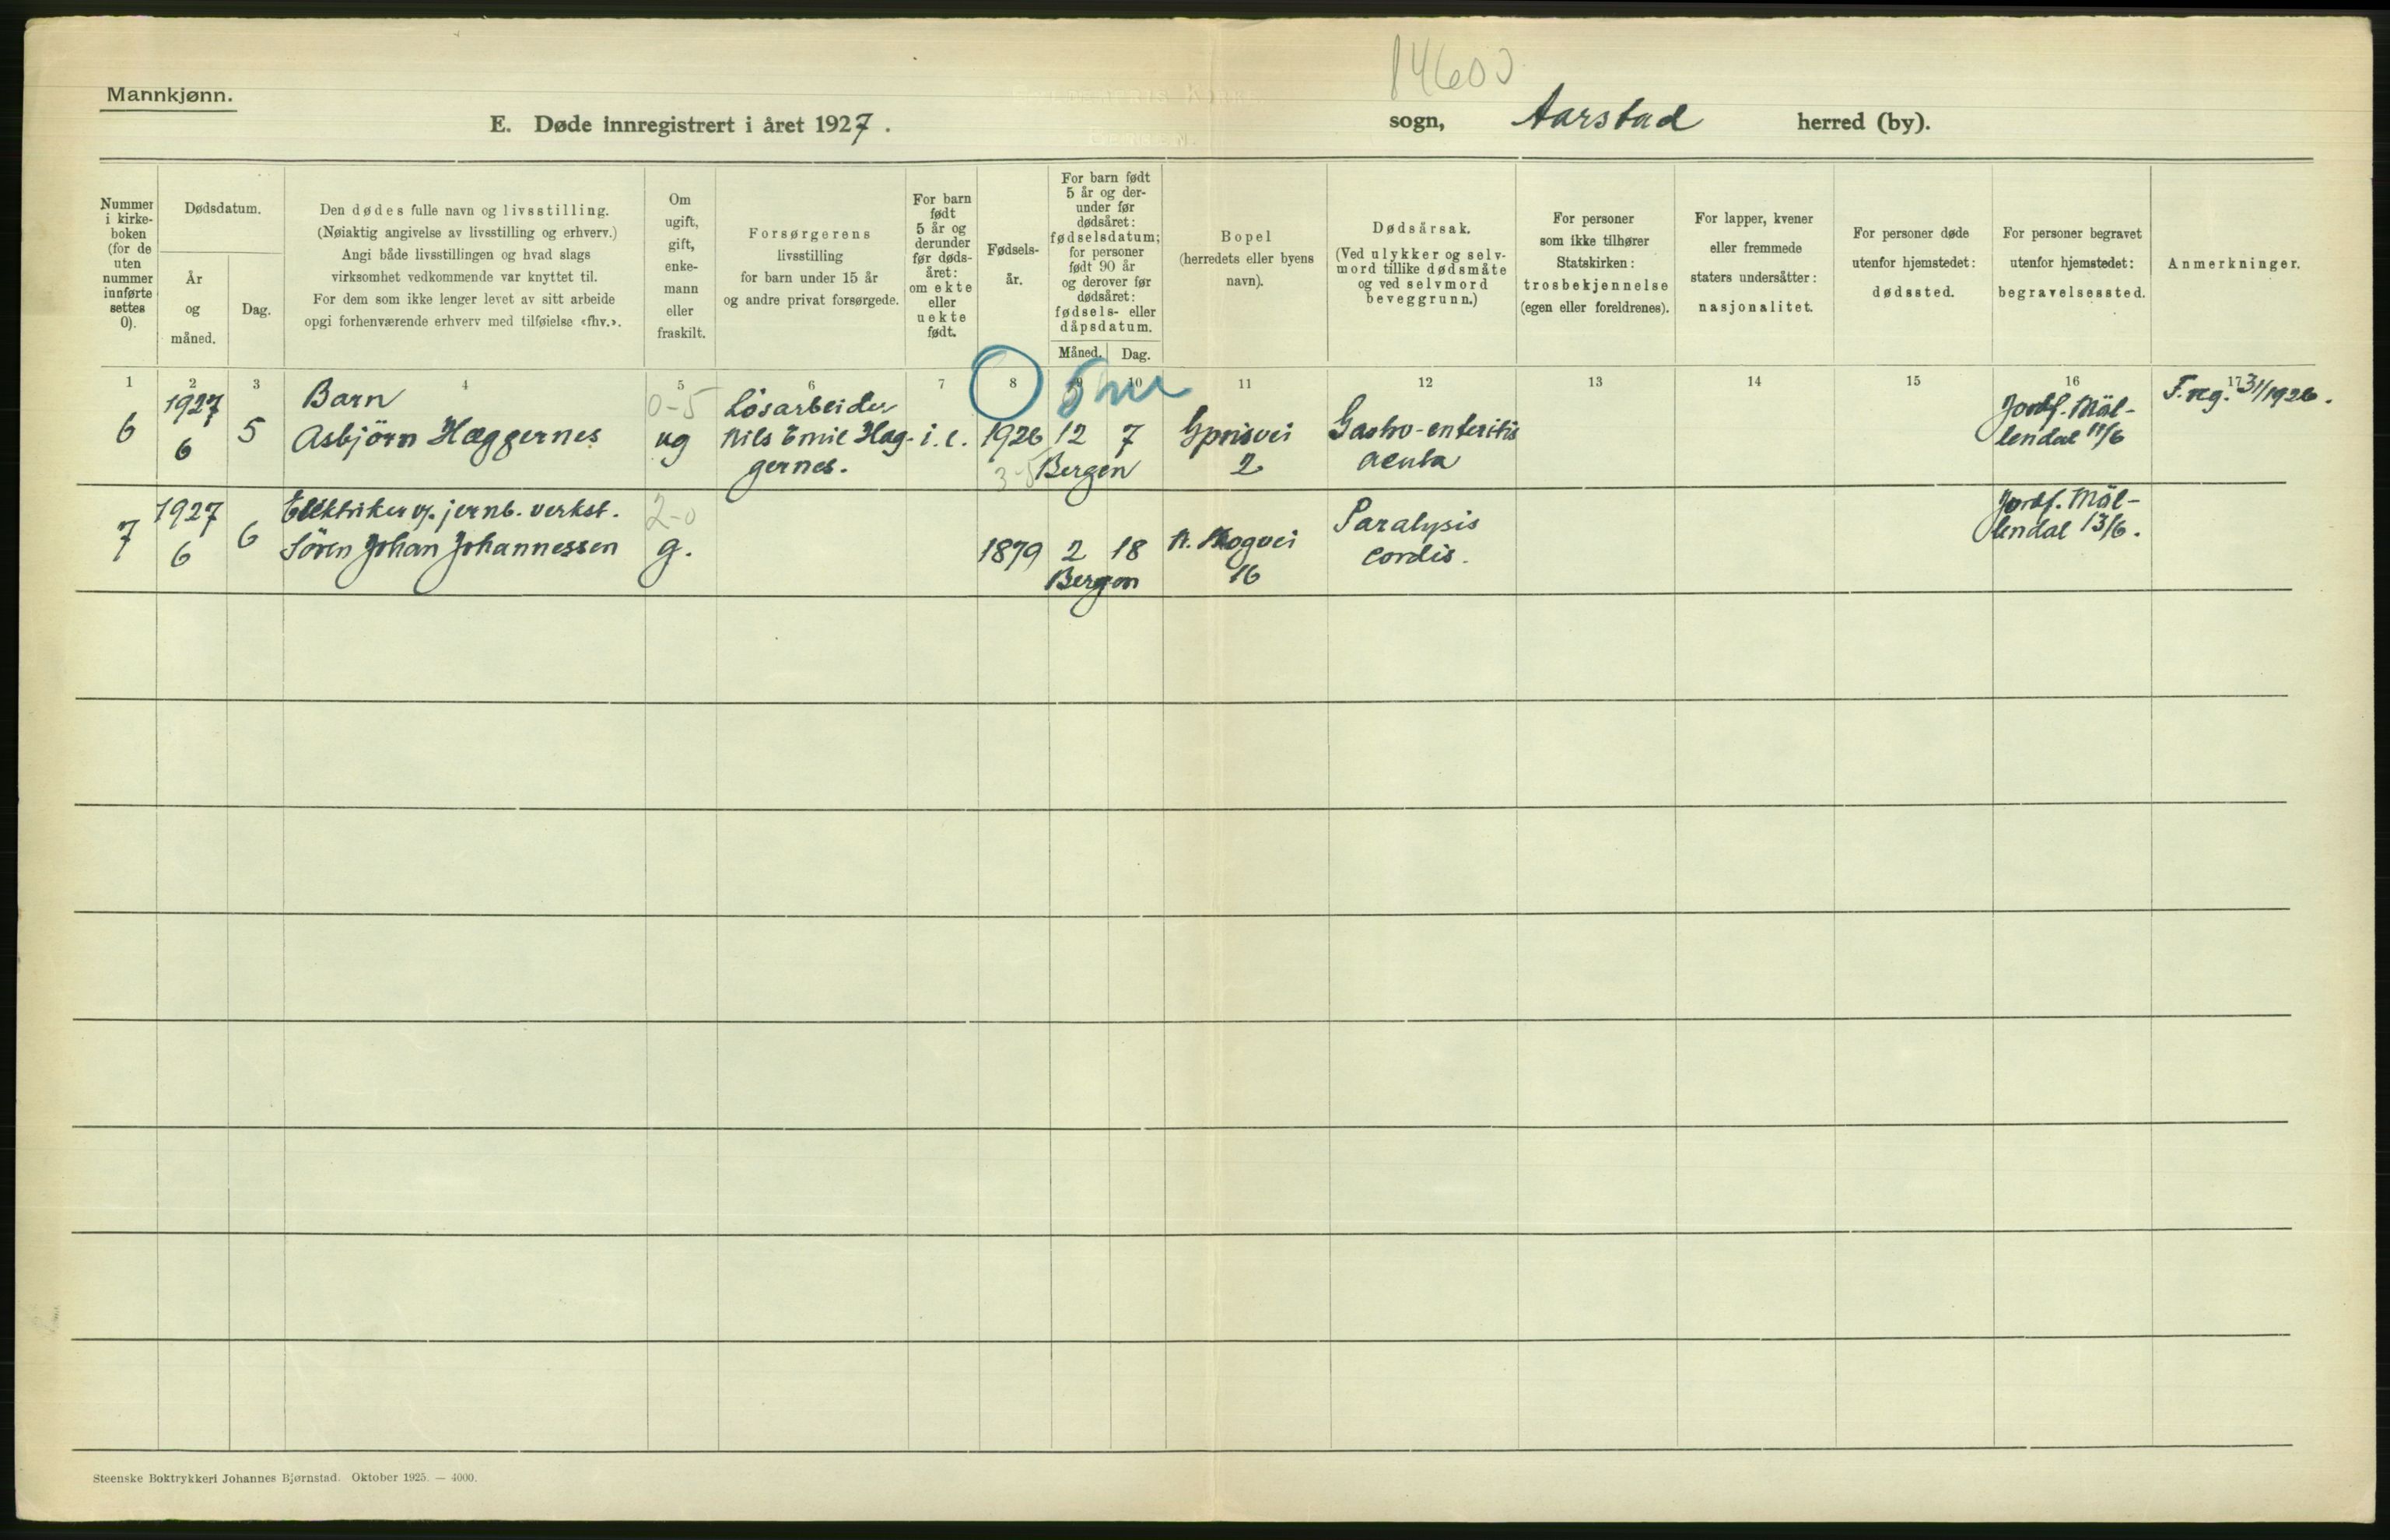 14600
Mannkjønn.
E. Døde innregistrert i året 1927.
sogn, Aarstad herred (by).
Nummer i kirke-boken (for de uten nummer innførte settes 0).
Dødsdatum.
År og måned.
Dag.
Den dødes fulle navn og livsstilling.
(Nøiaktig angivelse av livsstilling og erhverv.)
Angi både livsstillingen og hvad slags
virksomhet vedkommende var knyttet til.
For dem som ikke lenger levet av sitt arbeide
opgi forhenværende erhverv med tilføielse «fhv.».
Om ugift, gift, enke-mann eller fraskilt.
Forsørgerens
livsstilling
for barn under 15 år
og andre privat forsørgede.
For barn født 5 år og derunder før døds-året: om ekte eller uekte født.
Fødsels-år.
For barn født 5 år og der-under før dødsåret: fødselsdatum; for personer født 90 år og derover før dødsåret: fødsels- eller dåpsdatum.
Måned. Dag.
Bopel
(herredets eller byens
navn).
Dødsårsak.
(Ved ulykker og selv-
mord tillike dødsmåte
og ved selvmord
beveggrunn.)
For personer
som ikke tilhører
Statskirken:
trosbekjennelse
(egen eller foreldrenes).
For lapper, kvener
eller fremmede
staters undersåtter:
nasjonalitet.
For personer døde
utenfor hjemstedet:
dødssted.
For personer begravet
utenfor hjemstedet:
begravelsessted.
Anmerkninger.
1 2 3 4 5 6 7 8 9 10 11 12 13 14 15 16 17
6
1927
6
5
Barn
Asbjörn Hæggernes
0-5
ug
Lösarbeider
Nils Emil Hag-
gernes.
i.e.
1926 12 7
3-5 Bergen
5 m
2
Gastro-enteritis
acuta
Jordf. Möl-
lendal 11/6
F. reg. 3/1 1926.
7
1927
6
6
Elektriker v. jernb. verkst.
Sören Johan Johannessen
2-0
g.
1879 2 18
Bergen
N. Skogvei
16
Paralysis
cordis.
Jordf. Möl-
lendal 13/6.
Steenske Boktrykkeri Johannes Bjørnstad. Oktober 1925. — 4000.